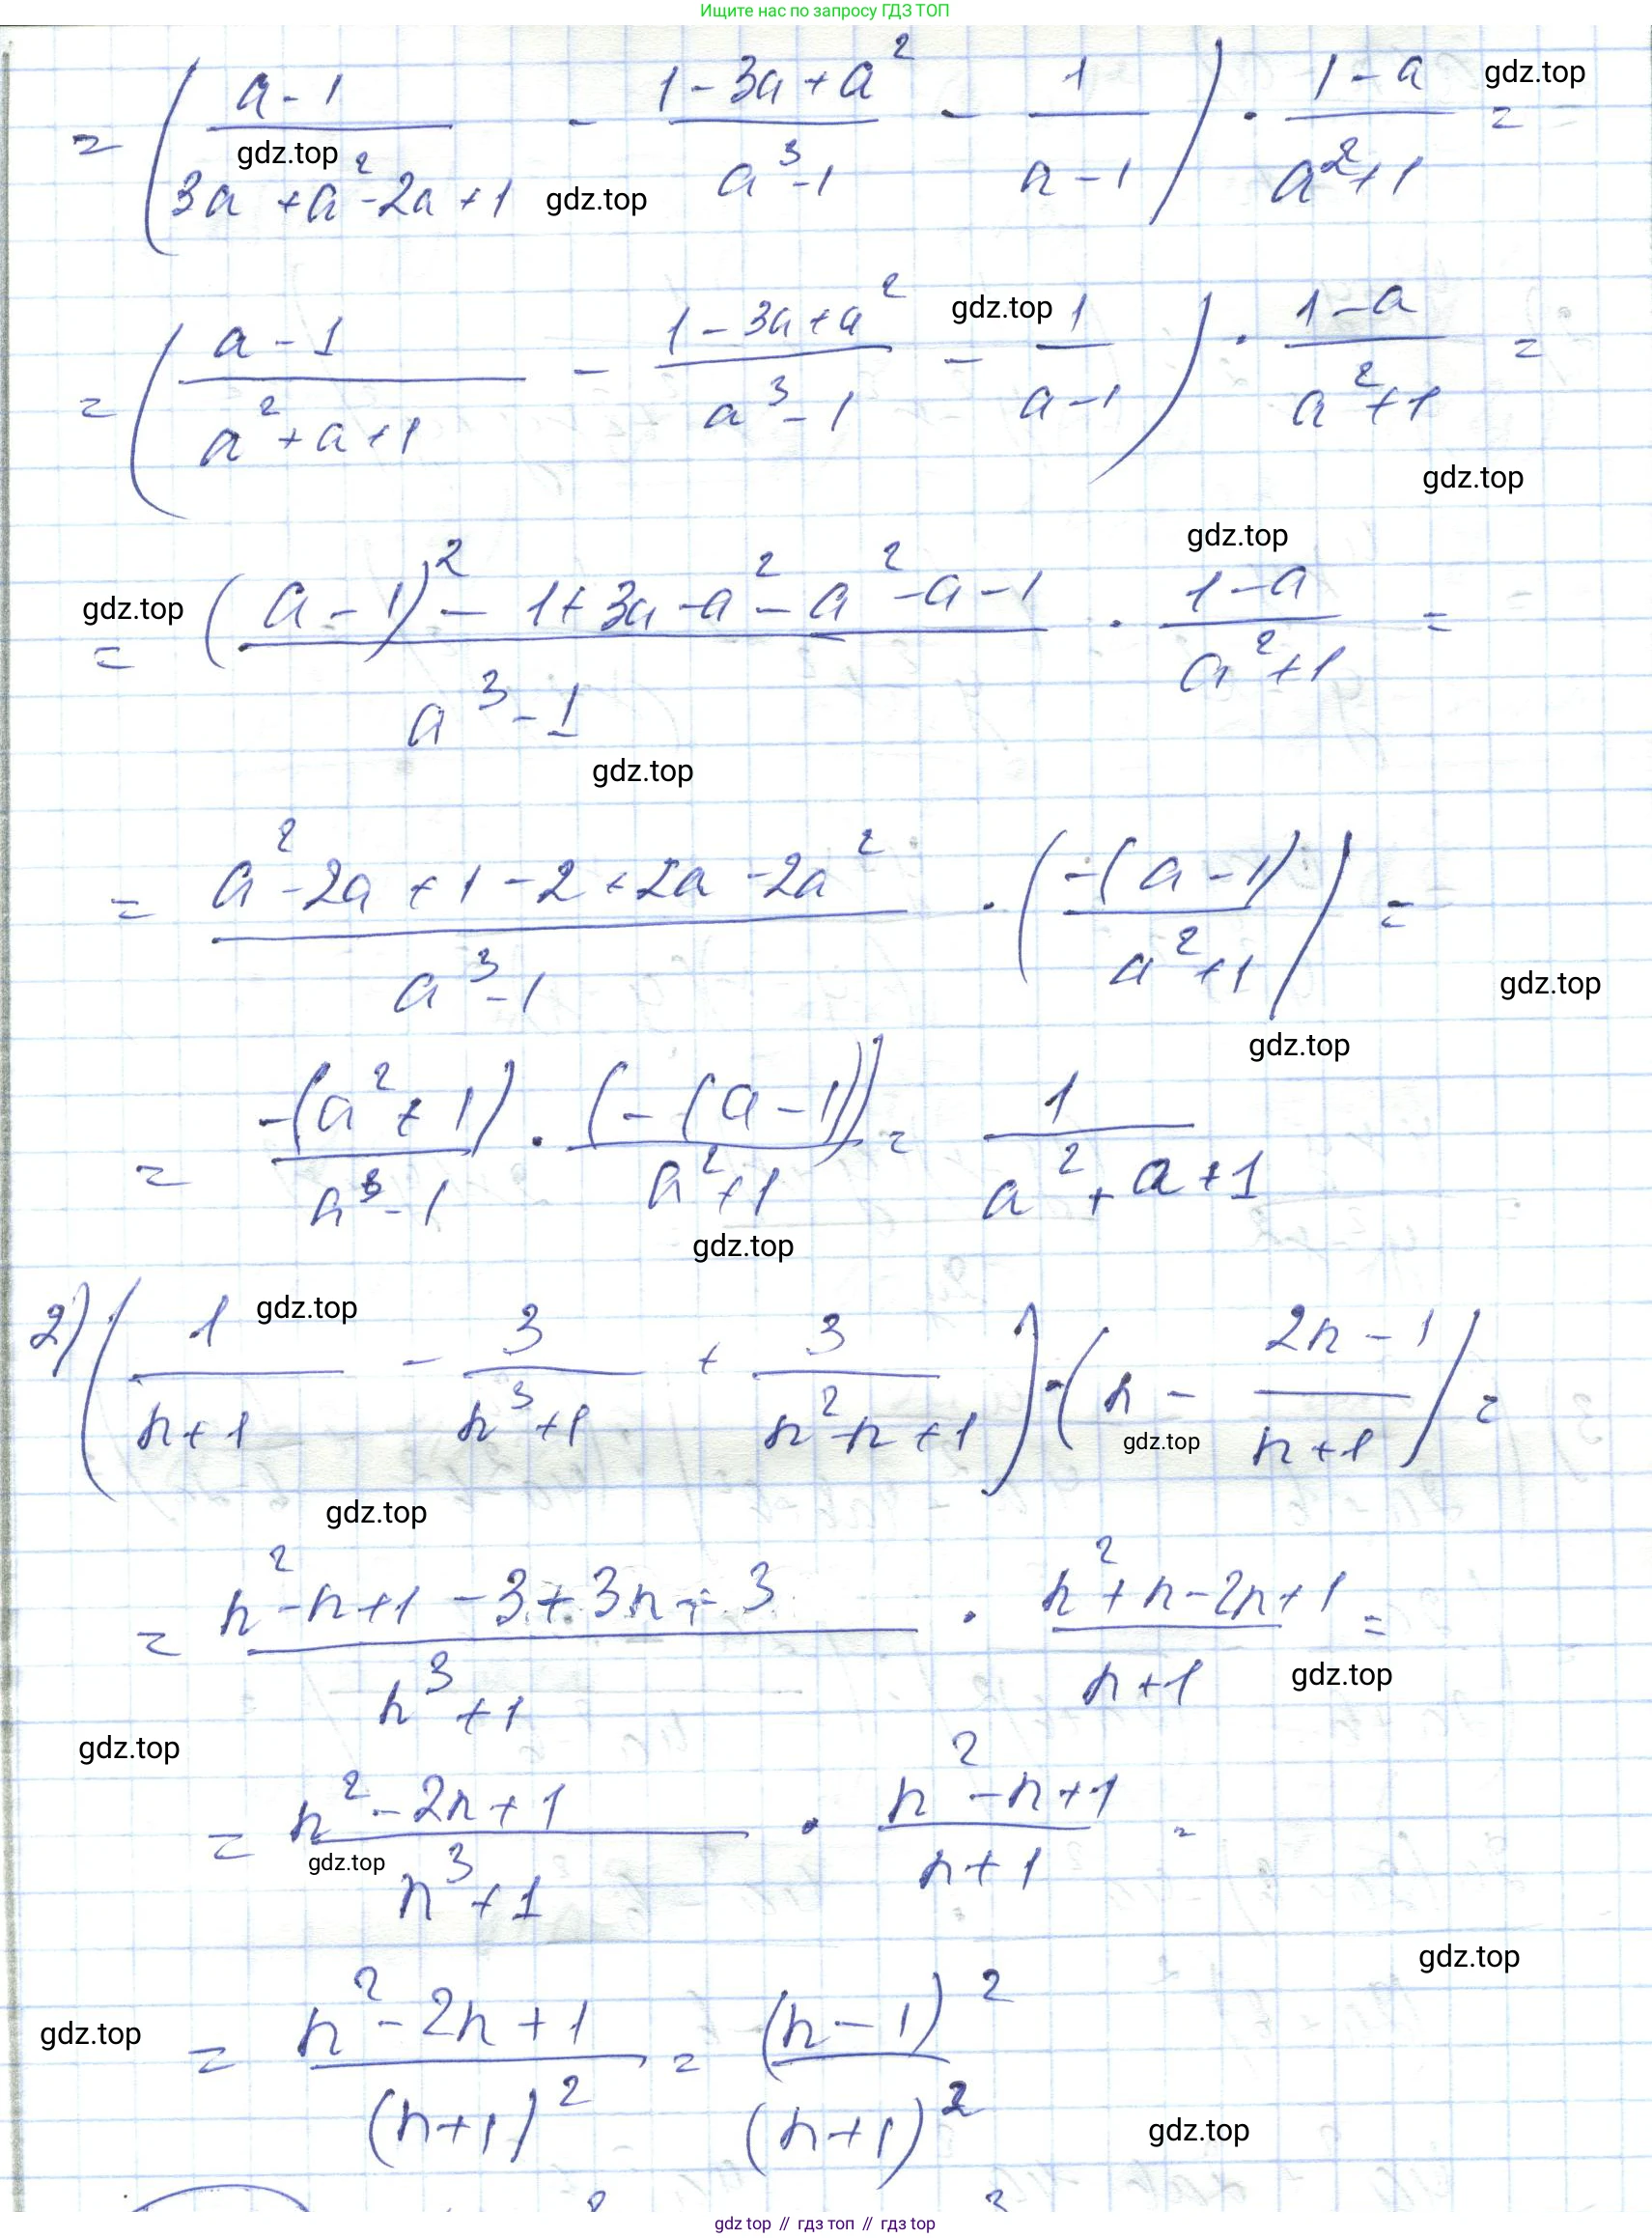 Ищите нас по запросу ГДЗ ТОП
= ( (a-1)/(3a+a²-2a+1) - (1-3a+a²)/(a³-1) - 1/(a-1) ) · (1-a)/(a²+1) = gdz.top
gdz.top
gdz.top
= ( (a-1)/(a²+a+1) - (1-3a+a²)/(a³-1) - 1/(a-1) ) · (1-a)/(a²+1) =
gdz.top
gdz.top
gdz.top
gdz.top
= ((a-1)² - 1+3a-a²-a²-a-1)/(a³-1) · (1-a)/(a²+1) =
gdz.top
= (a²-2a+1-2+2a-2a²)/(a³-1) · ( -(a-1)/(a²+1) ) =
gdz.top
gdz.top
= -(a²+1)/(a³-1) · (-(a-1))/(a²+1) = 1/(a²+a+1)
gdz.top
gdz.top
2) ( 1/(n+1) - 3/(n³+1) + 3/(n²-n+1) ) · ( n - (2n-1)/(n+1) ) =
gdz.top
gdz.top
= (n²-n+1-3+3n+3)/(n³+1) · (n²+n-2n+1)/(n+1) =
gdz.top
gdz.top
= (n²-2n+1)/(n³+1) · (n²-n+1)/(n+1) =
gdz.top
gdz.top
gdz.top
= (n²-2n+1)/(n+1)² = (n-1)²/(n+1)²
gdz.top
gdz top // гдз топ // гдз top